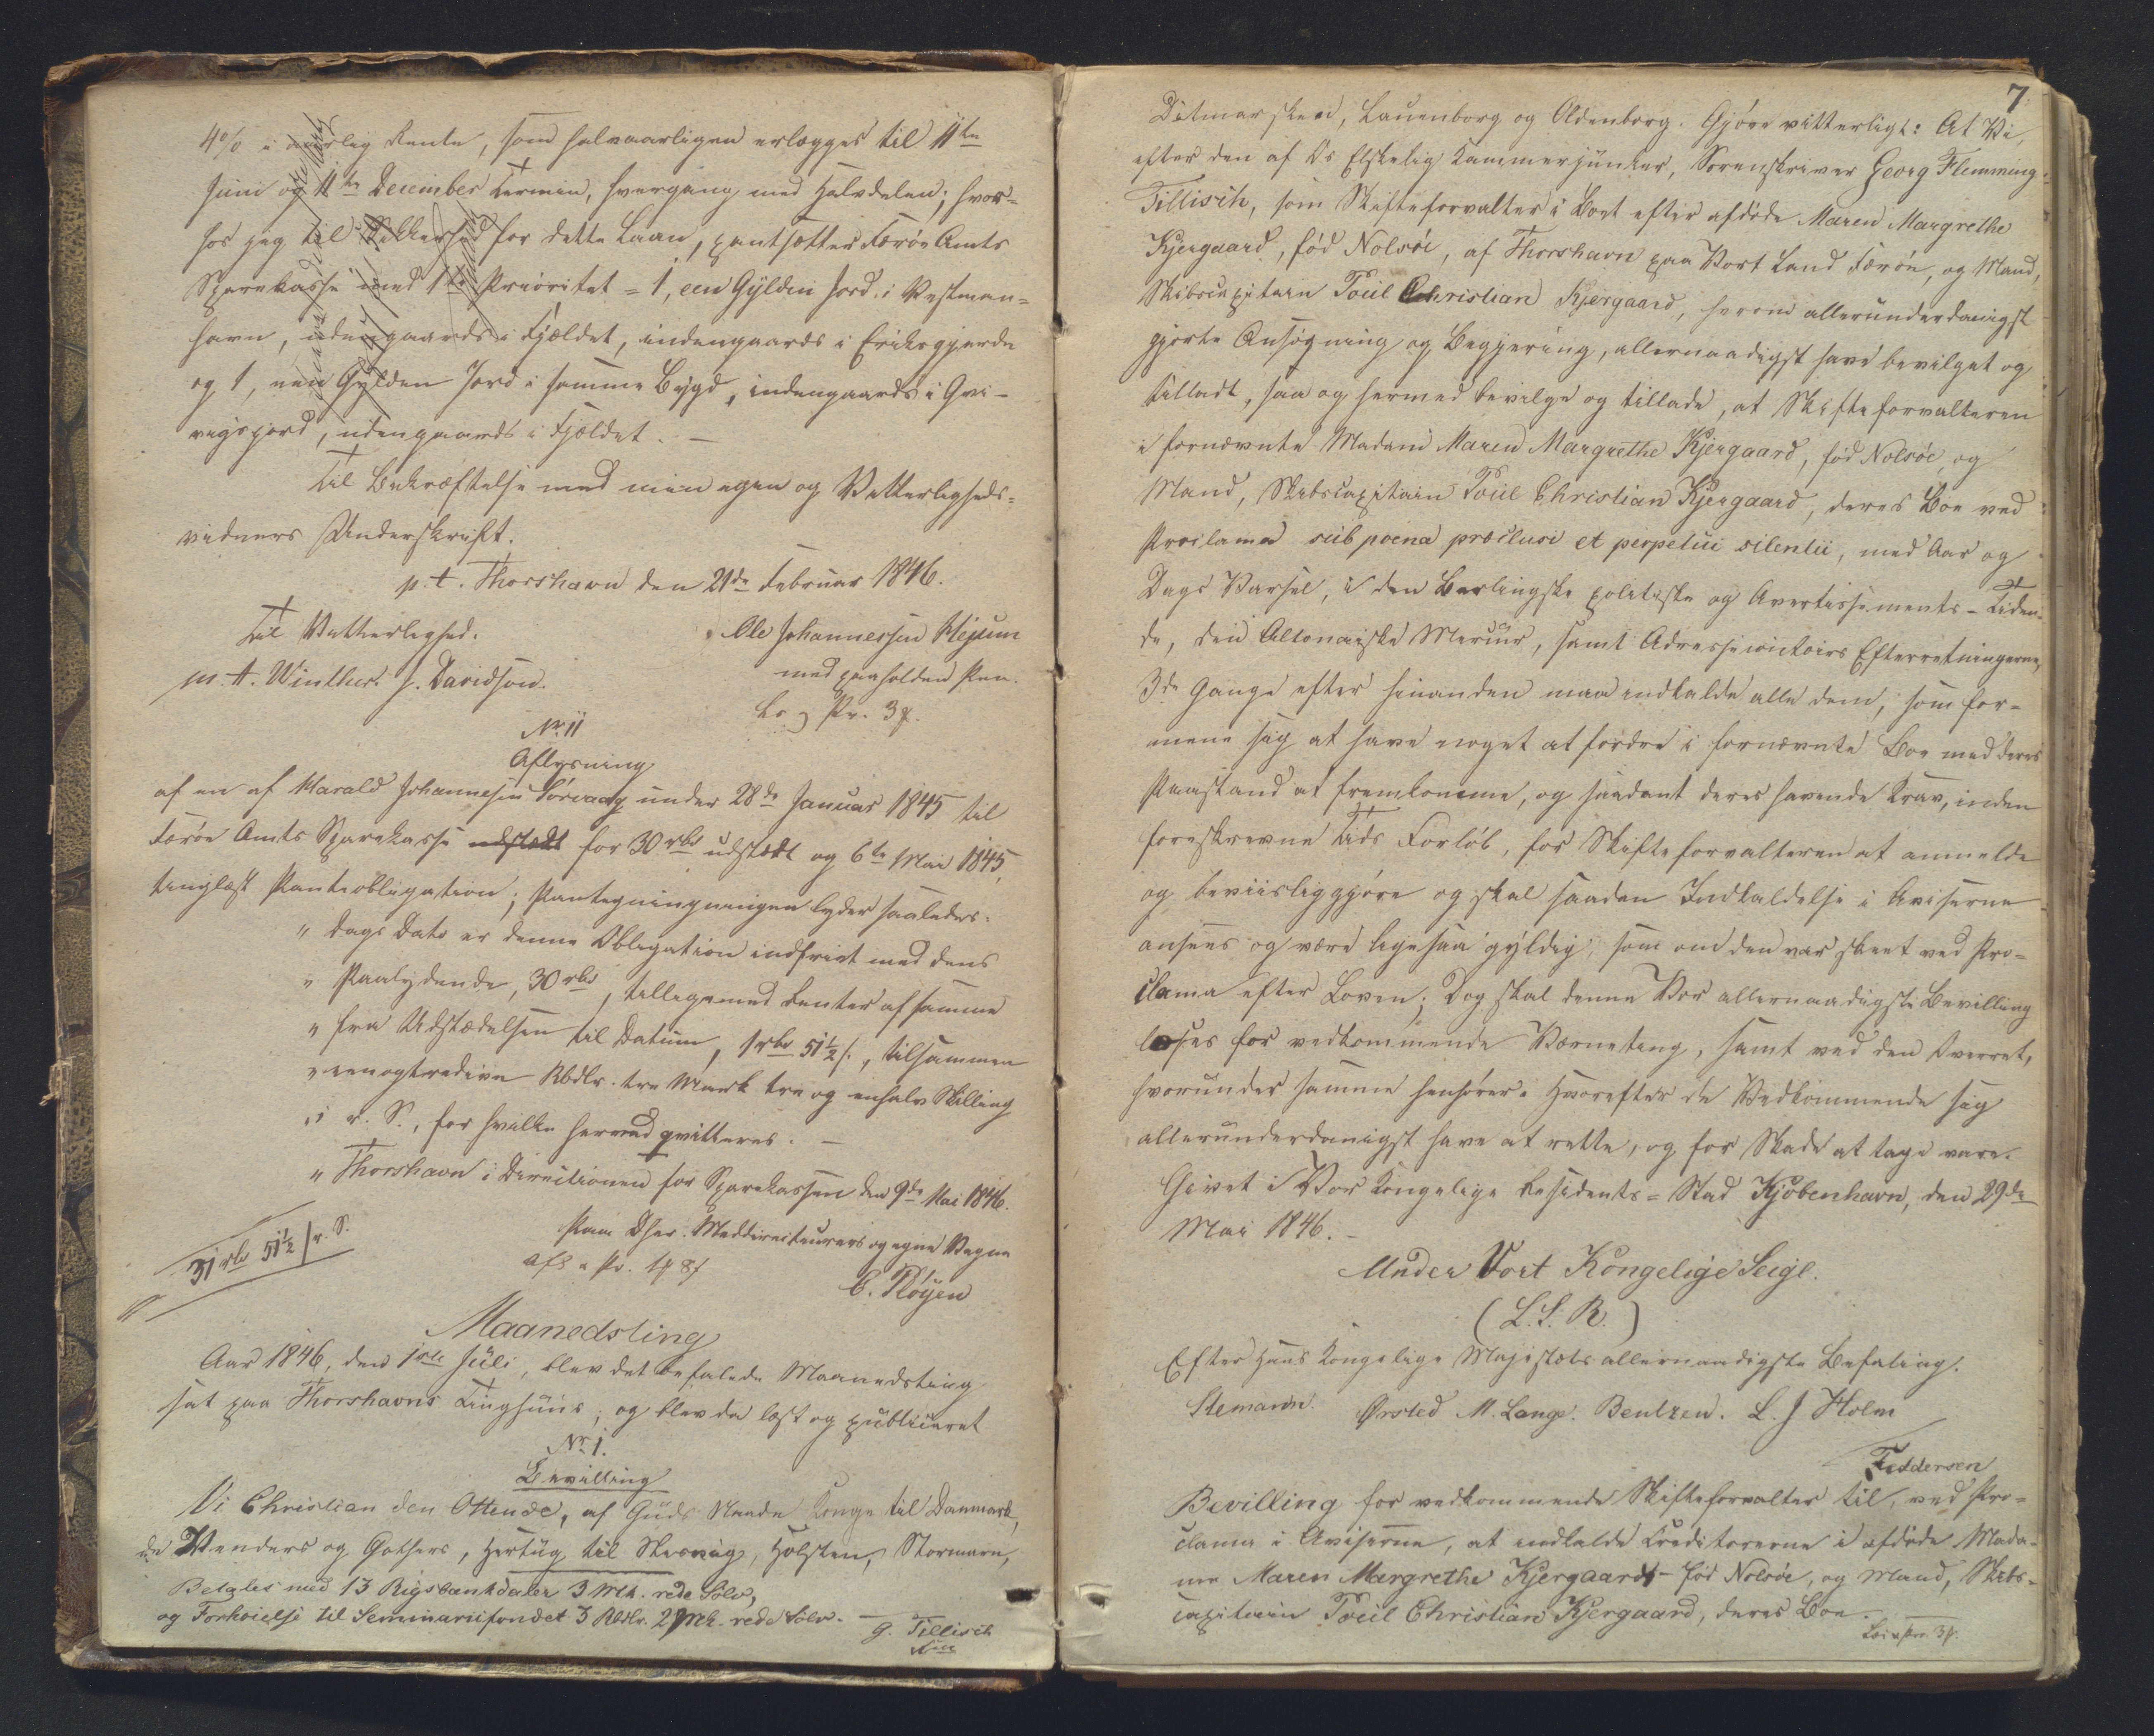 4% i aarlig Rente, som halvaarligen erlægges til 11te
Juni og 11te December Termin, hvergang med Halvdelen; hvor-
hos jeg til Sikkerhed for dette Laan, pantsætter Færøe Amts
Sparekasse med 1ste Prioritet = 1, een Gylden Jord i Vestman-
havn, udengaards i Fjeldet, indengaards i Eriksgjerde
og 1, een Gylden Jord i samme Bygd, indengaards i Qvi-
vigsjord, udengaards i Fjeldet. —
Til Bekræftelse med min egen og Vitterligheds-
vidners Underskrift.
p.t. Thorshavn den 21de Februar 1846.
Til Vitterlighed.
Ole Johannessen
M. A. Winther. J. Davidson.
med paaholden Pen.
Nr. 11
Aflysning
af en af Harald Johannesen Sørvaag under 28de Januar 1845 til
Færøe Amts Sparekasse udstædt for 30 rbd udstædt og 6te Mai 1845,
tinglæst Panteobligation; Paategningningen lyder saaledes:
" Dags Dato er denne Obligation indfriet med dens
" Paalydende, 30 rbd, tilligemed Renter af samme
" fra Udstædelsen til Datum, 1 rbd 51½ s., tilsammen
" eenogtredive Rbdlr. tre Mark tre og enhalv Skilling
" r. S., for hvilke herved qvitteres. —
" Thorshavn i Directionen for Sparekassen den 9de Mai 1846.
Paa Dhrr. Meddirecteurers og egne Vegne
31 rbd 51½ s r. S.
C. Pløyen
Maanedsting
Aar 1846, den 1ste Juli, blev det befalede Maanedsting
sat paa Thorshavns Tinghuus, og blev da læst og publiceret
Nr. 1.
Bevilling
Vi Christian den Ottende, af Guds Naade Konge til Danmark,
de Venders og Gothers, Hertug til Slesvig, Holsten, Stormarn,
Betales med 13 Rigsbankdaler 3 Mrk. rede Sølv,
og Forhøielse til Seminariifondet 3 Rbdlr. 2 Mrk. rede Sølv. — G. Tillisch
7
Ditmarsken, Lauenborg og Oldenborg. Gjøre vitterligt: At Vi,
efter den af Os Elskelig Kammerjunker, Sorenskriver Georg Flemming
Tillisch, som Skifteforvalter i Boet efter afdøde Maren Margrethe
Kjergaard, fød Nolsøe, af Thorshavn paa Vort Land Færøe, og Mand,
Skibscapitain Poul Christian Kjergaard, herom allerunderdanigst
gjorte Ansøgning og Begjering, allernaadigst have bevilget og
tilladt, saa og hermed bevilge og tillade, at Skifteforvalteren
i fornævnte Madam Maren Margrethe Kjergaard, fød Nolsøe, og
Mand, Skibscapitain Poul Christian Kjergaard, deres Boe ved
Proclama sub poena præclusi et perpetui silentii, med Aar og
Dags Varsel, i den Berlingske politiske og Avertissements-Tiden-
de, den Altonaiske Mercur, samt Adressecontoirs Efterretningerne,
3de Gange efter hinanden maa indkalde alle dem, som for-
mene sig at have noget at fordre i fornævnte Boe med deres
Paastand at fremkomme, og saadant deres havende Krav, inden
foreskrevne Tids Forløb, for Skifteforvalteren at anmelde
og beviisliggjøre og skal saadan Indkaldelse i Aviserne
ansees og være ligesaa gyldig, som om den var skeet ved Pro-
clama efter Loven; Dog skal denne Vor allernaadigste Bevilling
læses for vedkommende Værneting, samt ved den Overret,
hvorunder samme henhører. Hvorefter de Vedkommende sig
allerunderdanigst have at rette, og for Skade at tage vare.
Givet i Vor Kongelige Residents-Stad Kjøbenhavn, den 29de
Mai 1846. —
Under Vort Kongelige Seigl.
(L.S.R.)
Efter Hans Kongelige Majestæts allernaadigste Befaling.
Stemann. Ørsted M. Lange. Bentzen. L. J Holm
Feddersen
Bevilling for vedkommende Skifteforvalter til, ved Pro-
clama i Aviserne, at indkalde Creditorerne i afdøde Mada-
me Maren Margrethe Kjergaard - fød Nolsøe, og Mand, Skibs-
capitain Poul Christian Kjergaard, deres Boe.